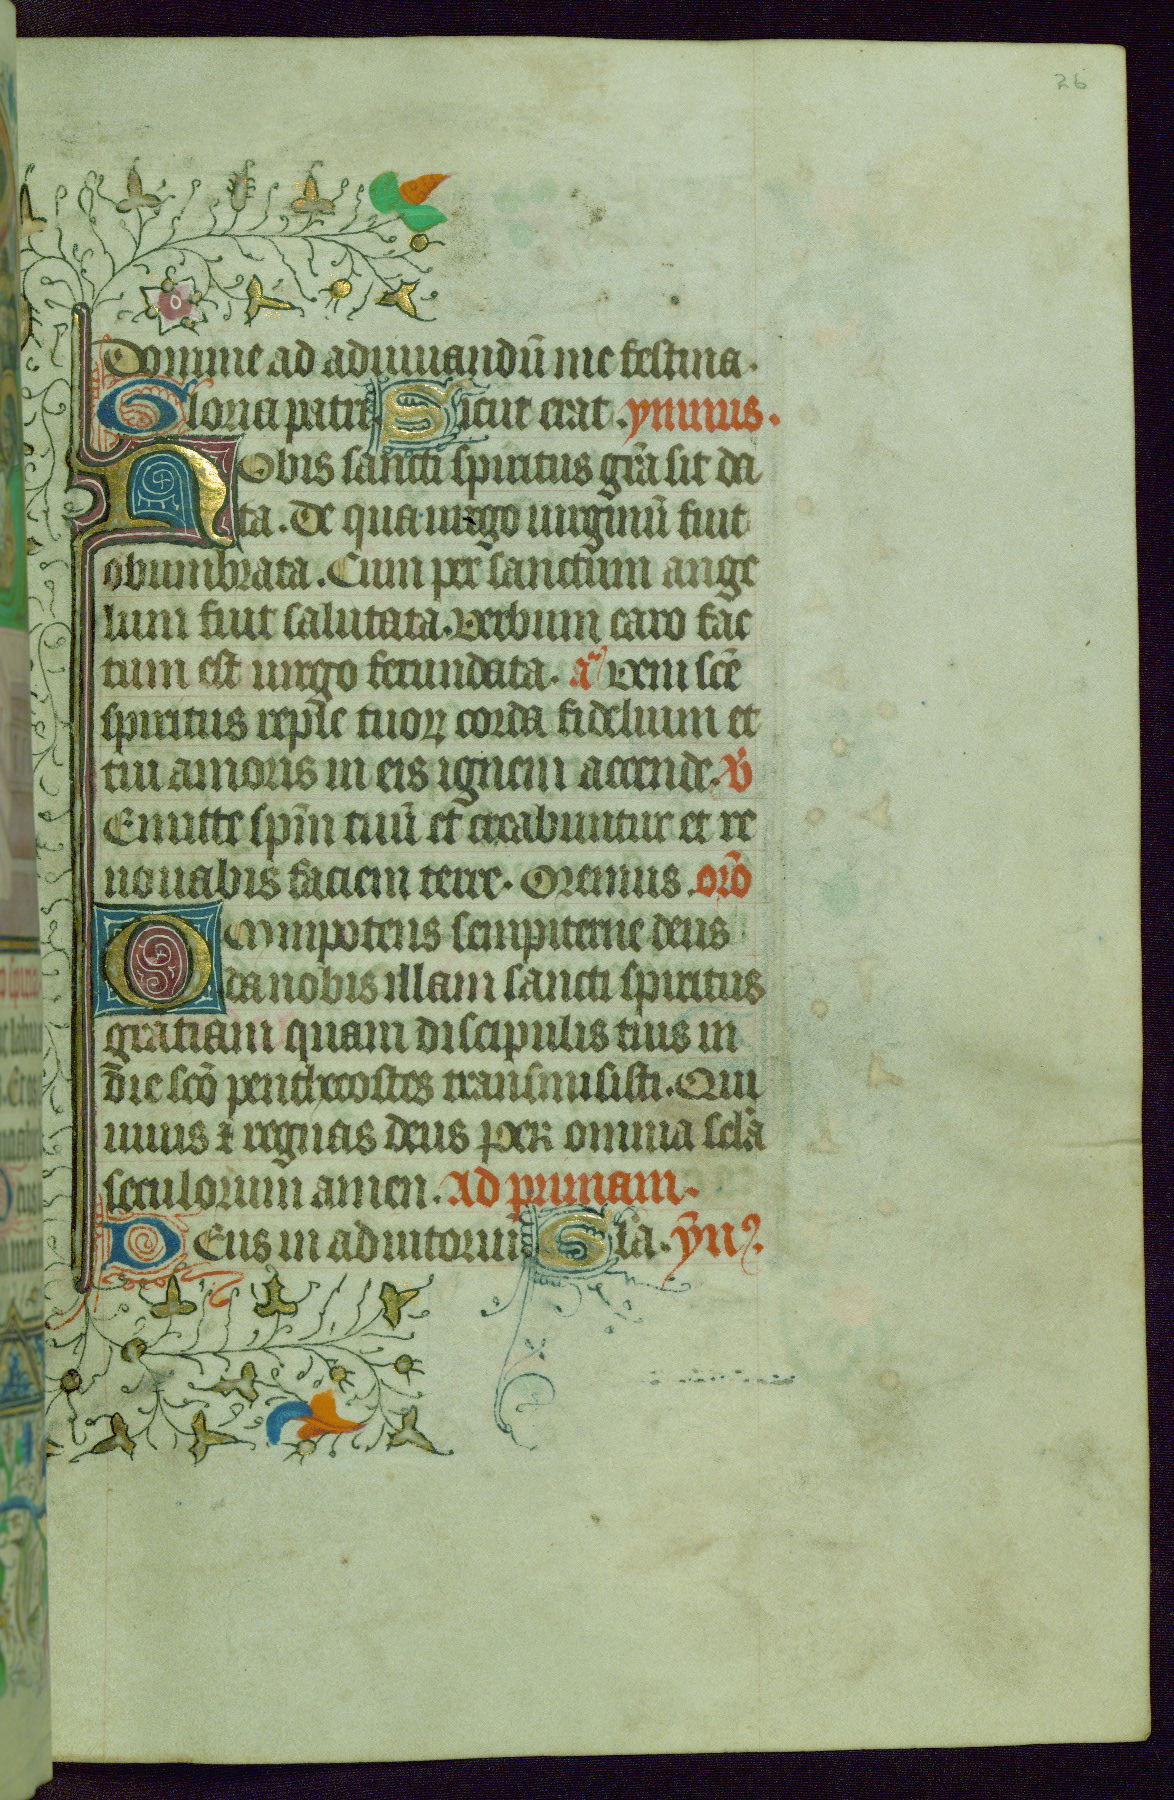 26
Domine ad adiuuandū me festina.
Gloria patri Sicut erat. ymnus.
Nobis sancti spiritus gr̄a sit da
ta. De qua uirgo uirginū fuit
obumbrata. Cum per sanctum ange
lum fuit salutata. Verbum caro fac
tum est uirgo fecundata. an̄ Veni sc̄e
spiritus reple tuoꝝ corda fidelium et
tui amoris in eis ignem accende. ℣
Emitte sp̄m tuū et creabuntur et re
nouabis faciem terre. Oremus. orō
Omnipotens sempiterne deus
da nobis illam sancti spiritus
gratiam quam discipulis tuis in
die scō penthecostes transmisisti. Qui
uiuis ⁊ regnas deus Per omnia sclā
seculorum amen. Ad primam.
Deus in adiutorium Glā. ȳn